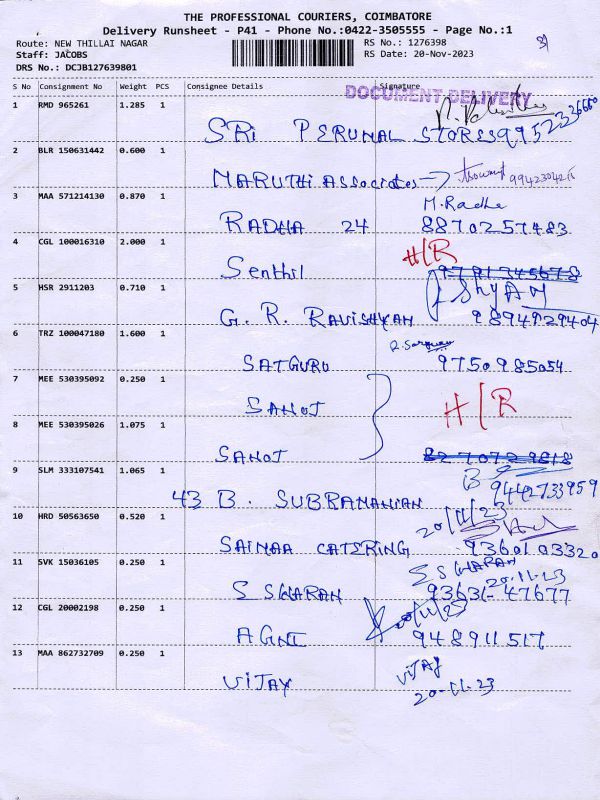 THE PROFESSIONAL COURIERS, COIMBATORE
Delivery Runsheet - P41 - Phone No.:0422-3505555 - Page No.:1
Route: NEW THILLAI NAGAR RS No.: 1276398
Staff: JACOBS RS Date: 20-Nov-2023
DRS No.: DCJB127639801
S No Consignment No Weight PCS Consignee Details Signature
DOCUMENT DELIVERY
1 RMD 965261 1.285 1
SRI PERUMAL STORES
2 BLR 150631442 0.600 1
MARUTHI ASSociates →
3 MAA 571214130 0.870 1 M. Radha
RADHA 24 8870257483
4 CGL 100016310 2.000 1 H/R
Senthil 9791345678
5 HSR 2911203 0.710 1 SHYAM
G. R. RAVISHYAM 9894929404
6 TRZ 100047180 1.600 1
SATGURU 9750985054
7 MEE 530395092 0.250 1
SANOJ H/R
8 MEE 530395026 1.075 1
SANOJ
9 SLM 333107541 1.065 1 B
43 B. SUBRAMANIAN 9442733959
10 HRD 50563650 0.520 1 20/11/23
SAIMAA CATERING 9360103320
11 SVK 15036105 0.250 1 S SWARAN 20.11.23
S SWARAN 93631-47677
12 CGL 20002198 0.250 1
AGNI 948911517
13 MAA 862732709 0.250 1 VIJAY
VIJAY 20-11-23